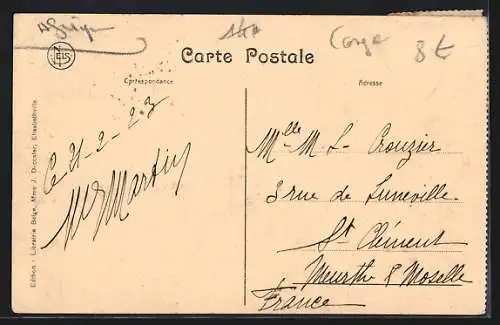 Congo
8 €
Carte Postale
Correspondance
Adresse
Édition - Librairie Belge, Mme J. Decoster, Elisabethville.
Ce 21-2-23
Martin
Mlle M. L. Crouzier
3 rue de Luneville
St Clément
Meurthe & Moselle
France